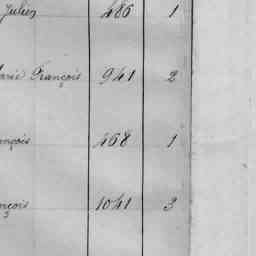 Julien 486 1
Marie François 941 2
ançois 468 1
nçois 1041 3